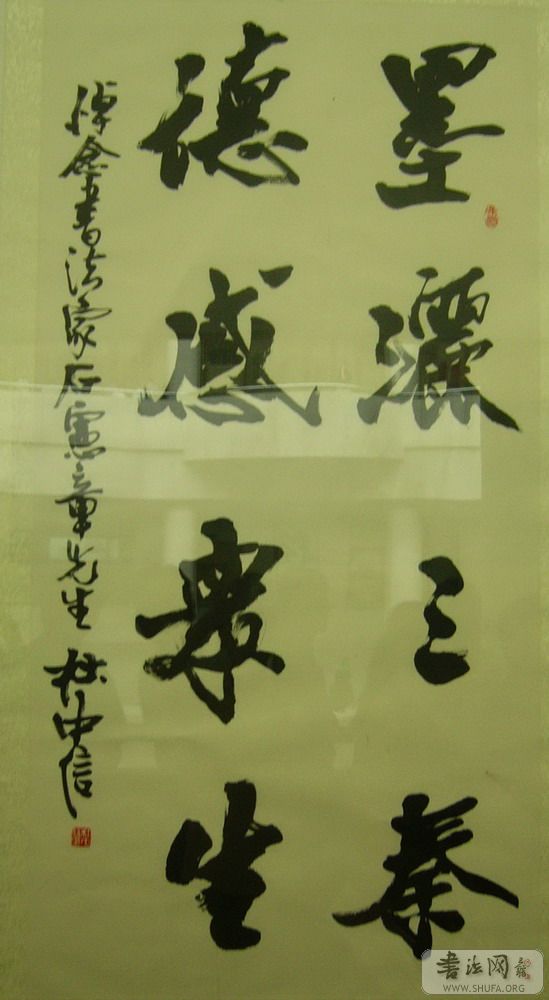 墨灑三秦
德感衆生
悼念書法家石憲章先生 杜中信
書法网
WWW.SHUFA.ORG